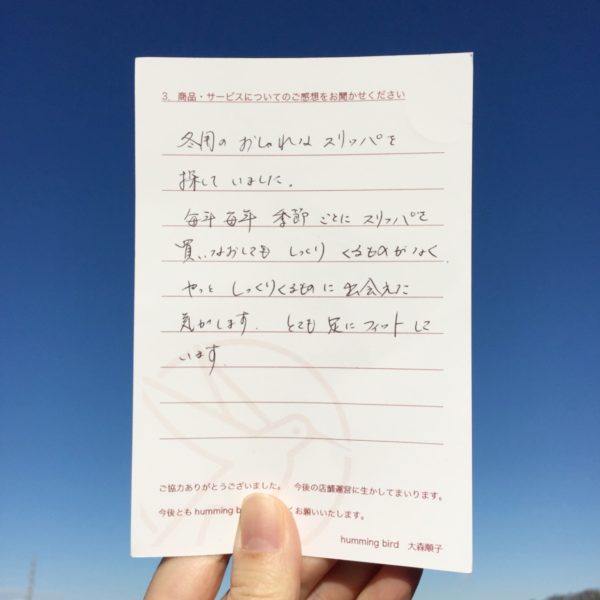 3. 商品・サービスについてのご感想をお聞かせください
冬用の おしゃれな スリッパを
探して いました。
毎年毎年 季節 ごとに スリッパを
買いなおしても しっくり くるものがなく
やっと しっくりくるものに 出会えた
気がします。 とても 足に フィット して
います。
ご協力ありがとうございました。 今後の店舗運営に生かしてまいります。
今後とも humming b くお願いいたします。
humming bird 大森順子